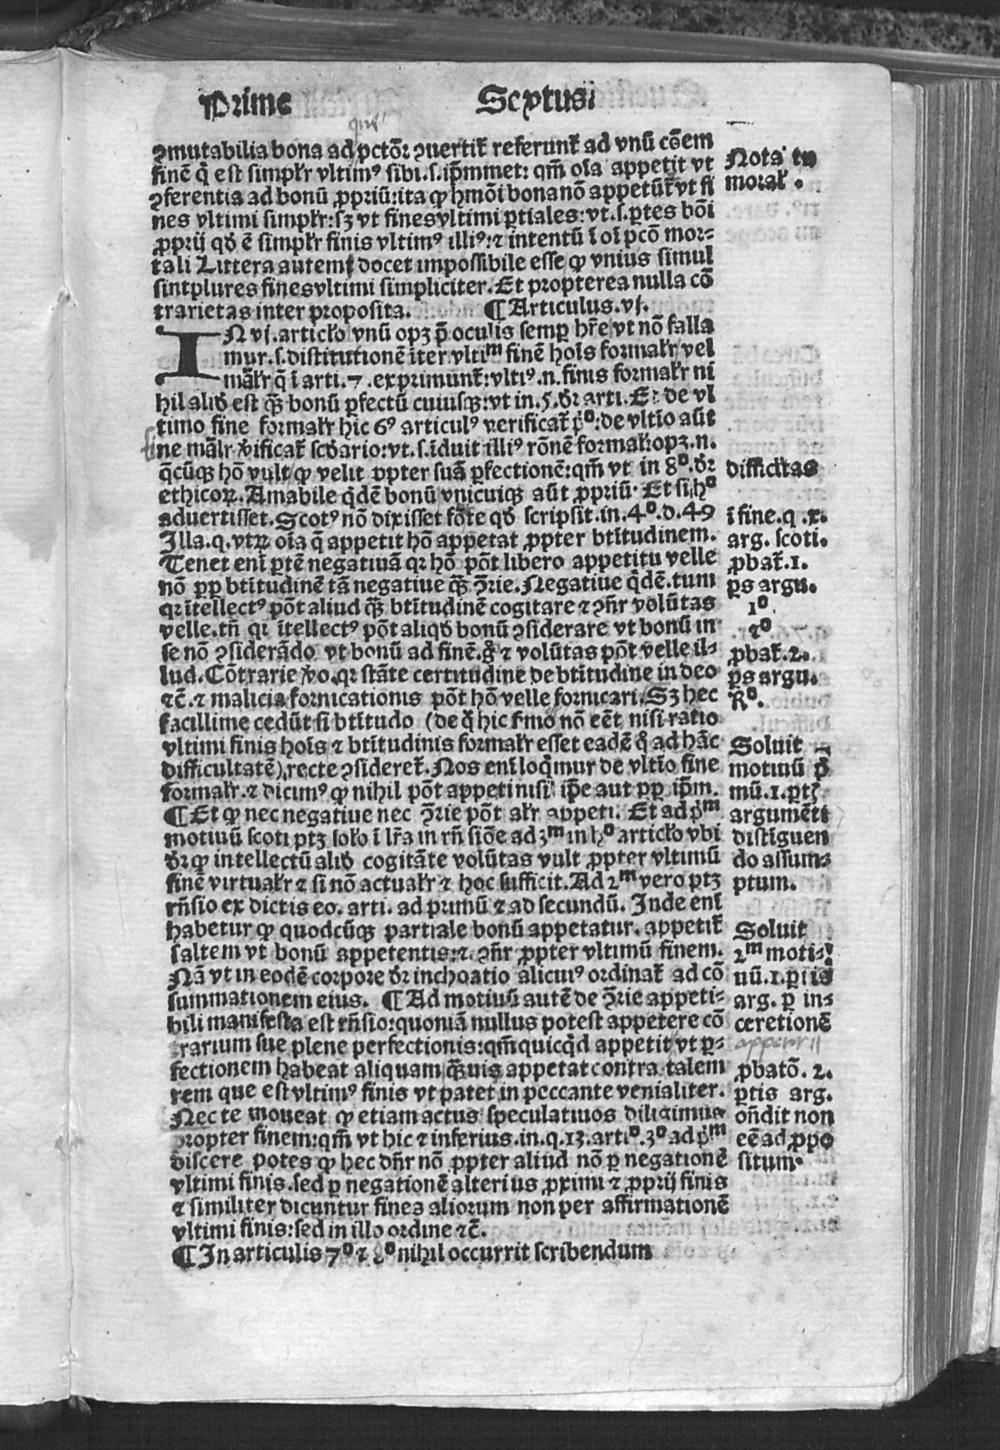 Prime Sextus
ꝯmutabilia bona ad pctō℞ ꝯuertit̄ referunt̄ ad vnū cōem
finē q̄ est simplr̄ vltimꝰ sibi.s.ip̄mmet: qm̄ oīa appetit vt
ꝯferentia ad bonū ꝓpriū: ita ꝙ hm̄oi bona nō appetūt̄ vt fi
nes vltimi simplr̄: sꝫ vt fines vltimi ꝑtiales: vt.s. ꝑtes bōi
ꝓprij qd̄ ē simplr̄ finis vltimꝰ illiꝰ: ⁊ intentū ī oī pcō mor⸗
tali Littera autem docet impossibile esse ꝙ vnius simul
sint plures fines vltimi simpliciter. Et propterea nulla cō
trarietas inter proposita. ¶ Articulus.vj.
IN vj. articło vnū opꝫ p̄ oculis semꝑ hr̄e vt nō falla
mur.s. distitutionē īter vltiᵐ finē hoīs formalr̄ vel
mālr̄ q̄ ī arti.7. exprimunt̄: vltiꝰ.n. finis formalr̄ ni
hil aliud est qꝫ bonū ꝑfectū cuiusqꝫ: vt in.5. dr̄ arti. Et de vl
timo fine formalr̄ hic 6ꝰ articulꝰ verificat̄ pº: de vltio aūt
fine mālr ꝟificat̄ scd̄ario: vt.s. īduit illiꝰ rōnē formalē opꝫ.n.
q̄cūqꝫ hō vult ꝙ velit ꝓpter suā ꝑfectionē: qm̄ vt in 8º. dr̄
ethicoꝝ. Amabile qd̄ē bonū vnicuiqꝫ aūt ꝓpriū. Et si hº
aduertisset. Scotꝰ nō dixisset fōrte qd̄ scripsit.in.4º.d.49
Illa.q. vtꝝ oīa q̄ appetit hō appetat ꝓpter btītudinem.
Tenet enī ꝑtē negatiuā qꝛ hō pōt libero appetitu velle
nō ꝓp btītudinē tā negatiue qꝫ ꝯrie. Negatiue qd̄ē. tum
qꝛ ītellectꝰ pōt aliud qꝫ btītudinē cogitare ⁊ ꝯn̄r volūtas
velle. tn̄ qꝛ ītellectꝰ pōt aliqd̄ bonū ꝯsiderare vt bonū in
se nō ꝯsiderādo vt bonū ad finē. g̊ ⁊ volūtas pōt velle il⸗
lud. Cōtrarie ꝟo. qꝛ stāte certitudine de btītudine in deo
⁊c̄. ⁊ malicia fornicationis pōt hō velle fornicari. Sꝫ hec
facillime cedūt si btītudo (de q̄ hic ẜmo nō eēt nisi ratio
vltimi finis hoīs ⁊ btītudinis formalr̄ esset eadē q̄ ad hāc
difficultatē) recte ꝯsideret̄. Nos enī loqmur de vltīo fine
formalr̄. ⁊ dicimꝰ ꝙ nihil pōt appeti nisi ip̄e aut ꝓp ip̄m.
¶ Et ꝙ nec negatiue nec ꝯrie pōt alr̄ appeti. Et ad pᵐ
motiuū scoti ptꝫ soło ī lr̄a in rn̄siōe ad 3ᵐ in hº articło vbi
dr̄ ꝙ intellectū aliud cogitāte volūtas vult ꝓpter vltimū
finē virtualr̄ ⁊ si nō actualr̄ ⁊ hoc sufficit. Ad 2ᵐ vero ptꝫ
rn̄sio ex dictis eo. arti. ad primū ⁊ ad secundū. Inde enī
habetur ꝙ quodcūqꝫ partiale bonū appetatur. appetit̄
saltem vt bonū appetentis: ⁊. ꝯn̄r ꝓpter vltimū finem.
Nā vt in eodē corpore dr̄ inchoatio alicuiꝰ ordinat̄ ad cō
summationem eius. ¶ Ad motiuū autē de ꝯrie appeti⸗
bili manifesta est rn̄sio: quoniā nullus potest appetere cō
trarium sue plene perfectionis: qm̄ quicqd̄ appetit vt ꝑ⸗
fectionem habeat aliquam qꝫuis appetat contra talem
rem que est vltimꝰ finis vt patet in peccante venialiter.
Nec te moueat ꝙ etiam actus speculatiuos diligimus
propter finem: qm̄ vt hic ⁊ inferius.in.q.13.artiº.3º ad pᵐ
discere potes ꝙ hec dn̄r nō ꝓpter aliud nō ꝑ negationē
vltimi finis. sed ꝑ negationē alterius ꝓximi ⁊ ꝓprij finis
⁊ similiter dicuntur fines aliorum non per affirmationē
vltimi finis: sed in illo ordine ⁊c̄.
¶ In articulis 7º ⁊ 8º nihil occurrit scribendum
Nota tu
moral̄.
difficltas
ī fine.q.x.
arg. scoti.
ꝓbat̄.1.
ꝑs argu.
1º
2º
ꝓbat̄.2.
ꝑs argu.
℞º.
Soluit
motiuū p̄
mū.1.ꝑtꝭ
argumēti
distīguen
do assum⸗
ptum.
Soluit
2ᵐ moti⸗
uū.1.ꝑtis
arg. ꝑ in⸗
ceretionē
ꝓbatō.2.
ꝑtis arg.
on̄dit non
eē ad ꝓpo
situm.